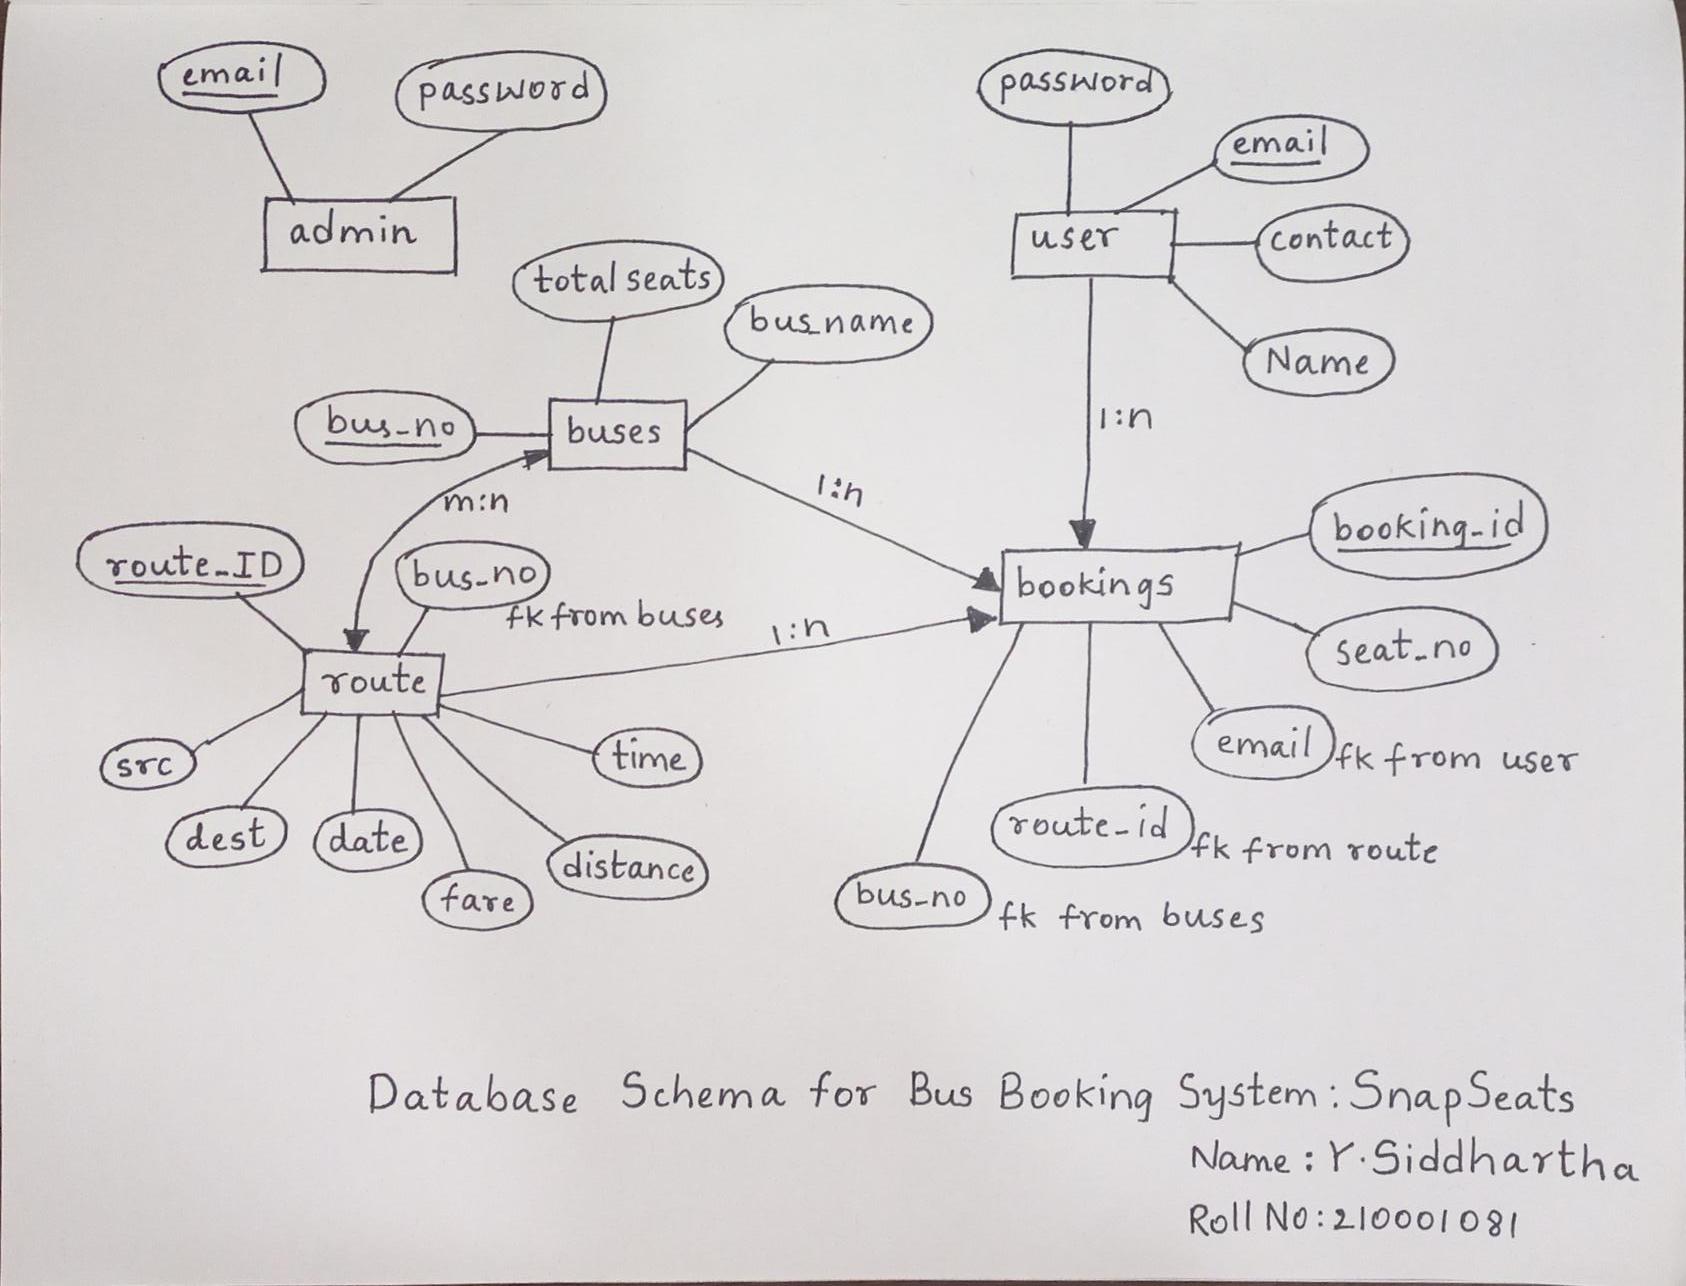 email
password
admin
password
email
user
contact
Name
total seats
bus_name
bus_no
buses
1:n
m:n
1:n
route_ID
bus_no
fk from buses
1:n
bookings
booking_id
seat_no
route
src
dest
date
fare
distance
time
email
fk from user
route_id
fk from route
bus_no
fk from buses
Database Schema for Bus Booking System: SnapSeats
Name: Y. Siddhartha
Roll No: 210001081